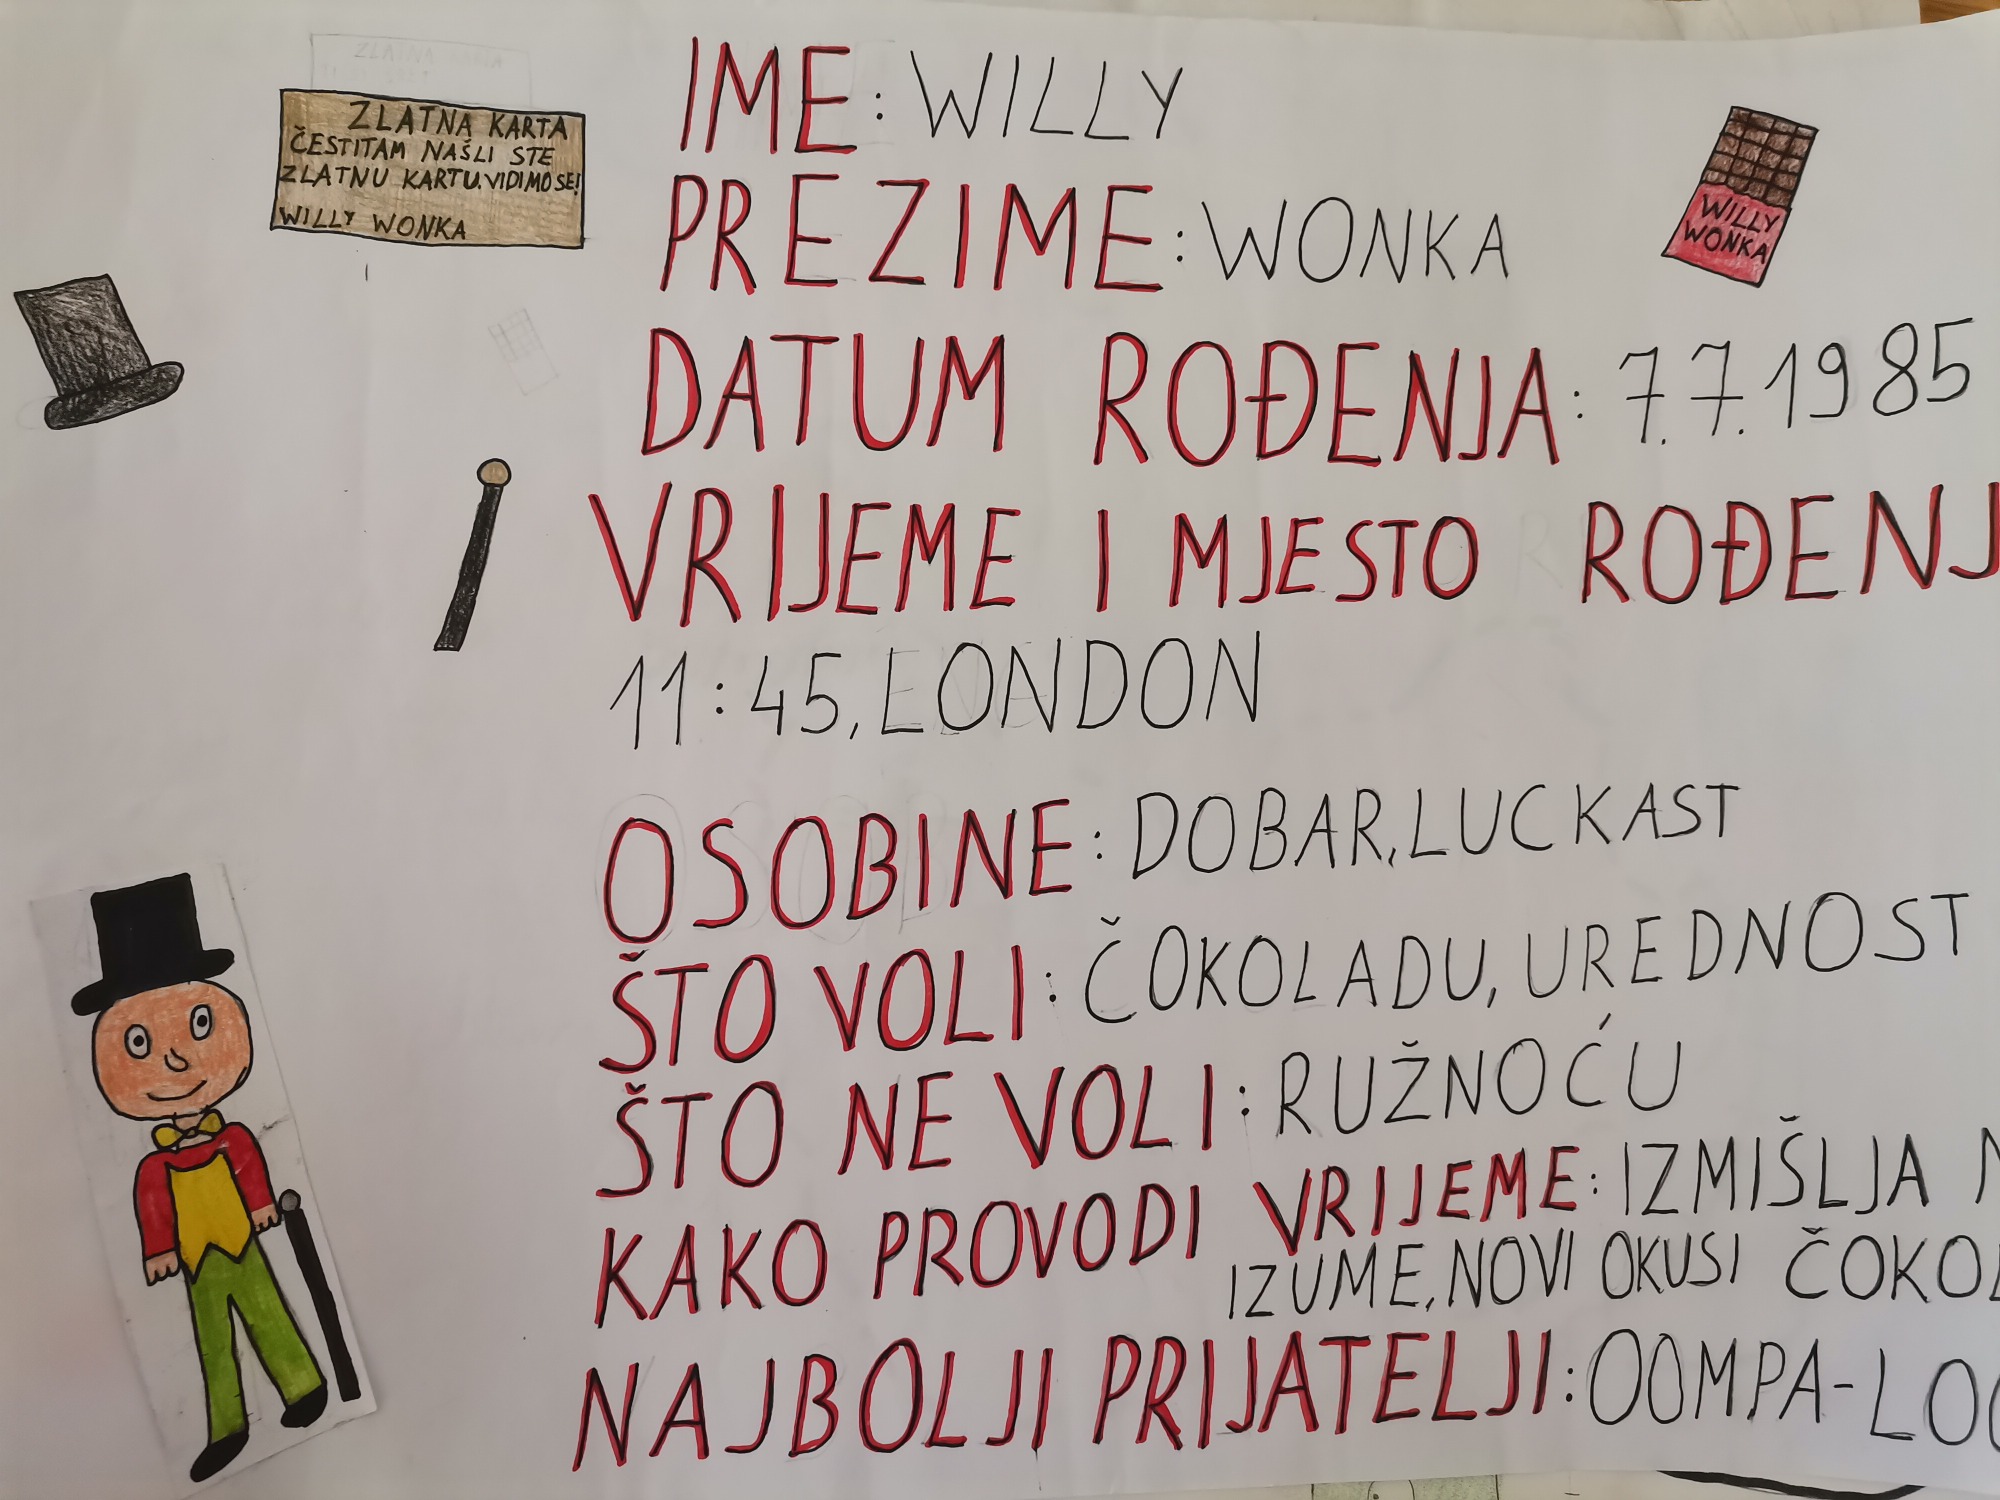 ZLATNA KARTA
ČESTITAM NAŠLI STE
ZLATNU KARTU. VIDIMO SE!
WILLY WONKA
IME: WILLY
PREZIME: WONKA
WILLY
WONKA
DATUM ROĐENJA: 7.7.1985
VRIJEME I MJESTO ROĐENJ
11:45, LONDON
OSOBINE: DOBAR, LUCKAST
ŠTO VOLI: ČOKOLADU, UREDNOST
ŠTO NE VOLI: RUŽNOĆU
KAKO PROVODI VRIJEME: IZMIŠLJA N
IZUME, NOVI OKUSI ČOKOL
NAJBOLJI PRIJATELJI: OOMPA-LOO